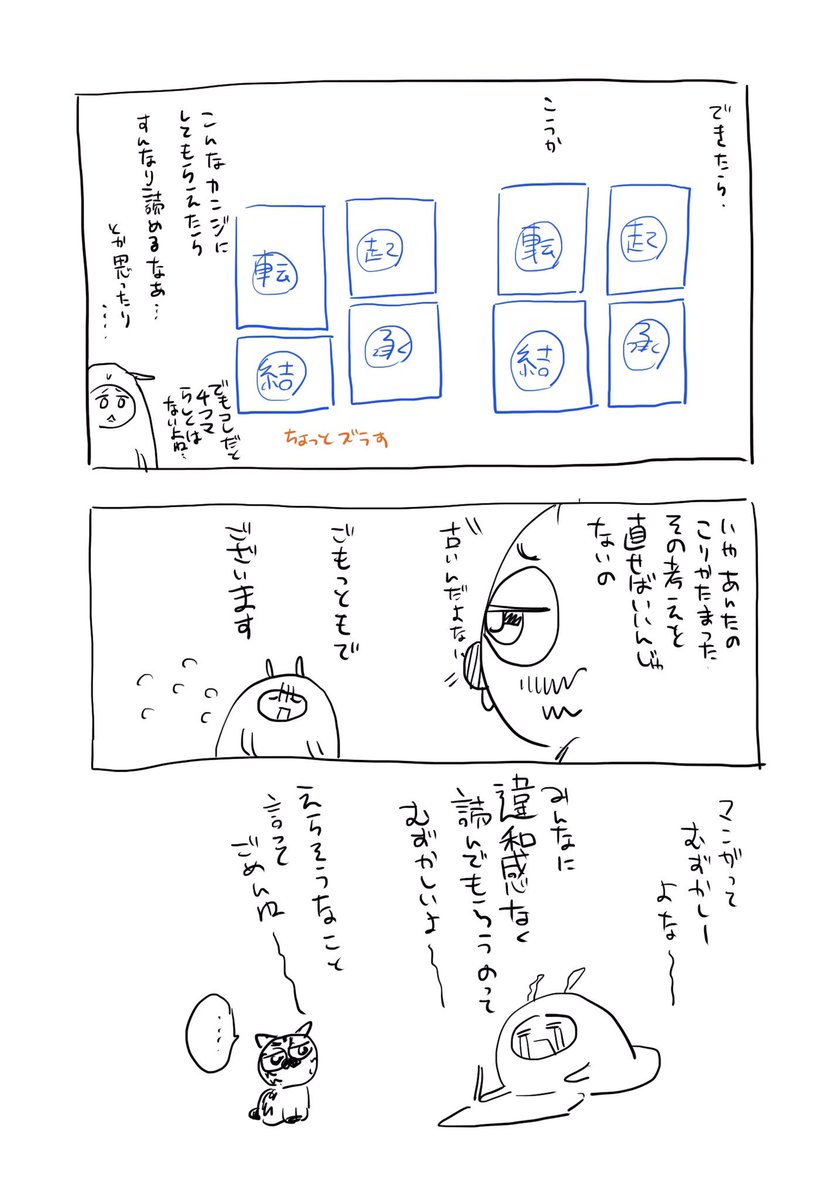 できたら、
こうか
起
承
転
結
起
承
転
結
ちょっとズラす
こんなカンジに
してもらえたら
すんなり読めるなぁ…
とか思ったり
‥‥
でもコレだと
4コマ
らしくは
ないよね…
いや あんたの
こりかたまった
その考えを
直せばいいんじゃ
ないの
古いんだよな
ごもっともで
ございます
マンガって
むずかしー
よな〜
みんなに
違和感なく
読んでもらうのって
むずかしいよ〜
えらそうなこと
言って
ごめんね〜
‥‥